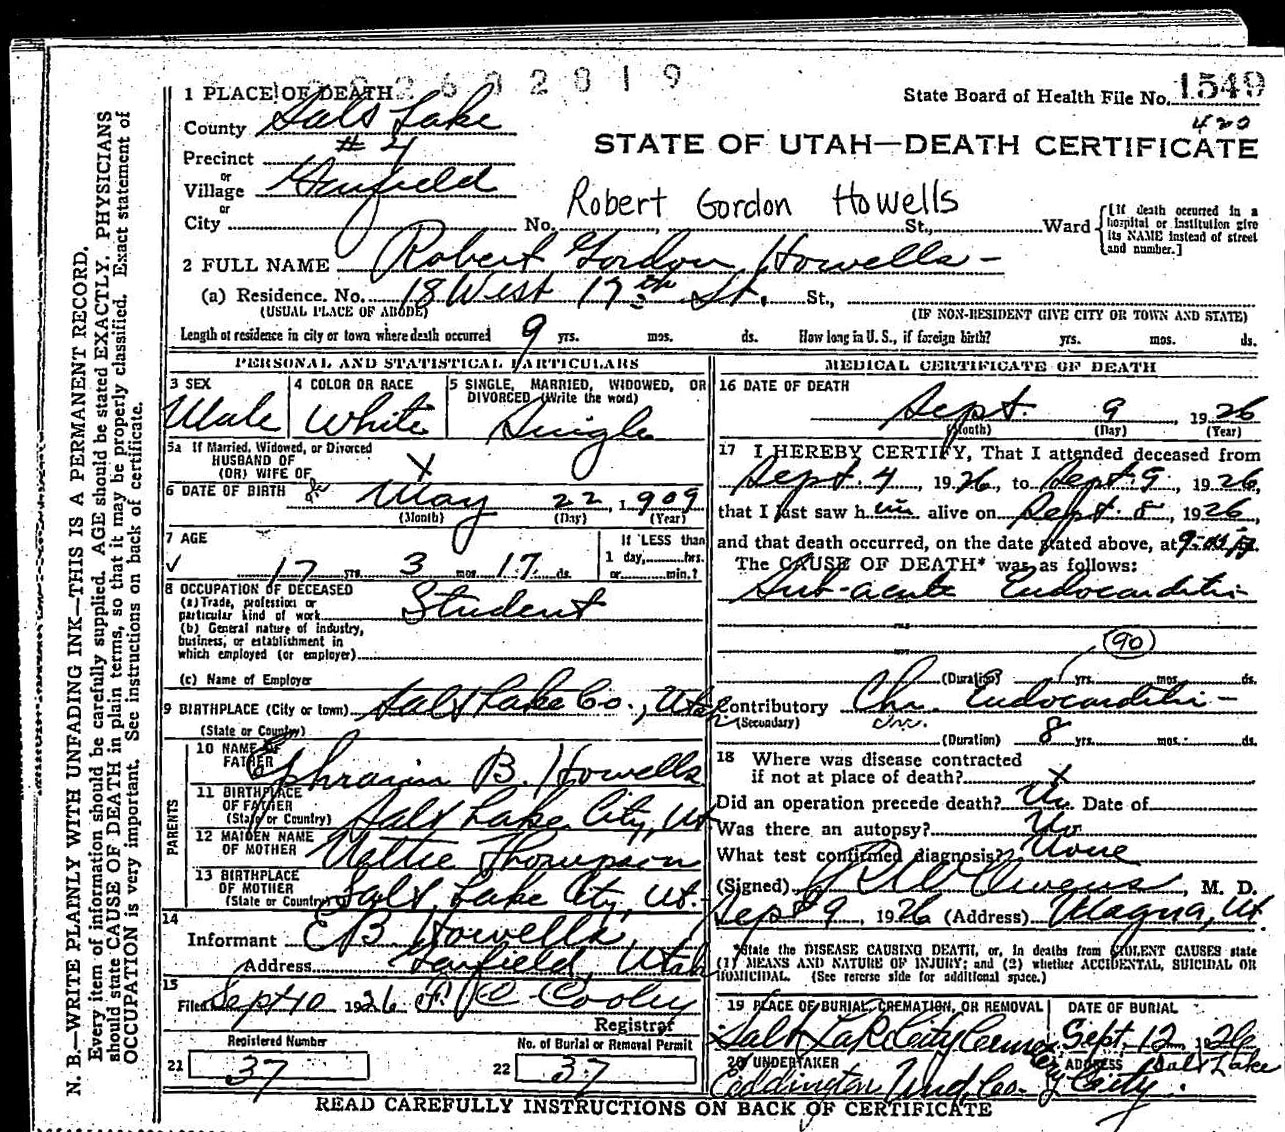 2632819
1 PLACE OF DEATH
State Board of Health File No. 1549
420
County Salt Lake
STATE OF UTAH—DEATH CERTIFICATE
Precinct #4
or
Village Garfield
or
Robert Gordon Howells
City No. St., Ward
[If death occurred in a hospital or institution give its NAME instead of street and number.]
2 FULL NAME Robert Gordon Howells -
(a) Residence. No. 18 West 17th St. St.,
(USUAL PLACE OF ABODE) (IF NON-RESIDENT GIVE CITY OR TOWN AND STATE)
Length of residence in city or town where death occurred 9 yrs. mos. ds. How long in U. S., if foreign birth? yrs. mos. ds.
PERSONAL AND STATISTICAL PARTICULARS
3 SEX Male
4 COLOR OR RACE White
5 SINGLE, MARRIED, WIDOWED, OR DIVORCED (Write the word) Single
5a If Married, Widowed, or Divorced
HUSBAND OF
(OR) WIFE OF X
6 DATE OF BIRTH May 22, 1909
(Month) (Day) (Year)
7 AGE
If LESS than
1 day, hrs.
or min.?
17 yrs. 3 mos. 17 ds.
8 OCCUPATION OF DECEASED
(a) Trade, profession or
particular kind of work Student
(b) General nature of industry,
business, or establishment in
which employed (or employer)
(c) Name of Employer
9 BIRTHPLACE (City or town) Salt Lake Co., Utah
(State or Country)
PARENTS
10 NAME OF FATHER Ephraim B. Howells
11 BIRTHPLACE OF FATHER (State or Country) Salt Lake City, Ut
12 MAIDEN NAME OF MOTHER Nettie Thompson
13 BIRTHPLACE OF MOTHER (State or Country) Salt Lake City, Ut.
14
Informant E B. Howells,
Address Garfield, Utah
15
Filed Sept 10 1926 C Cooley
Registrar
Registered Number
21 37
No. of Burial or Removal Permit
22 37
MEDICAL CERTIFICATE OF DEATH
16 DATE OF DEATH
Sept. 9 1926
(Month) (Day) (Year)
17 I HEREBY CERTIFY, That I attended deceased from
Sept. 4, 1926, to Sept. 9, 1926,
that I last saw him alive on Sept. 8, 1926,
and that death occurred, on the date stated above, at
The CAUSE OF DEATH* was as follows:
Sub-acute Endocarditis
90
(Duration) yrs. mos. ds.
Contributory Chr. Endocarditis -
(Secondary) Chr.
(Duration) 8 yrs. mos. ds.
18 Where was disease contracted
if not at place of death? X
Did an operation precede death? No. Date of
Was there an autopsy? No
What test confirmed diagnosis? None
(Signed) Owens, M. D.
Sept 9, 1926 (Address) Magna, Ut
*State the DISEASE CAUSING DEATH, or, in deaths from VIOLENT CAUSES state
(1) MEANS AND NATURE OF INJURY; and (2) whether ACCIDENTAL, SUICIDAL OR
HOMICIDAL. (See reverse side for additional space.)
19 PLACE OF BURIAL, CREMATION, OR REMOVAL Salt Lake City Cemetery
DATE OF BURIAL Sept. 12 1926
20 UNDERTAKER Eddington Und. Co.
ADDRESS Salt Lake City.
READ CAREFULLY INSTRUCTIONS ON BACK OF CERTIFICATE
N. B.—WRITE PLAINLY WITH UNFADING INK—THIS IS A PERMANENT RECORD.
Every item of information should be carefully supplied. AGE should be stated EXACTLY. PHYSICIANS
should state CAUSE OF DEATH in plain terms, so that it may be properly classified. Exact statement of
OCCUPATION is very important. See instructions on back of certificate.